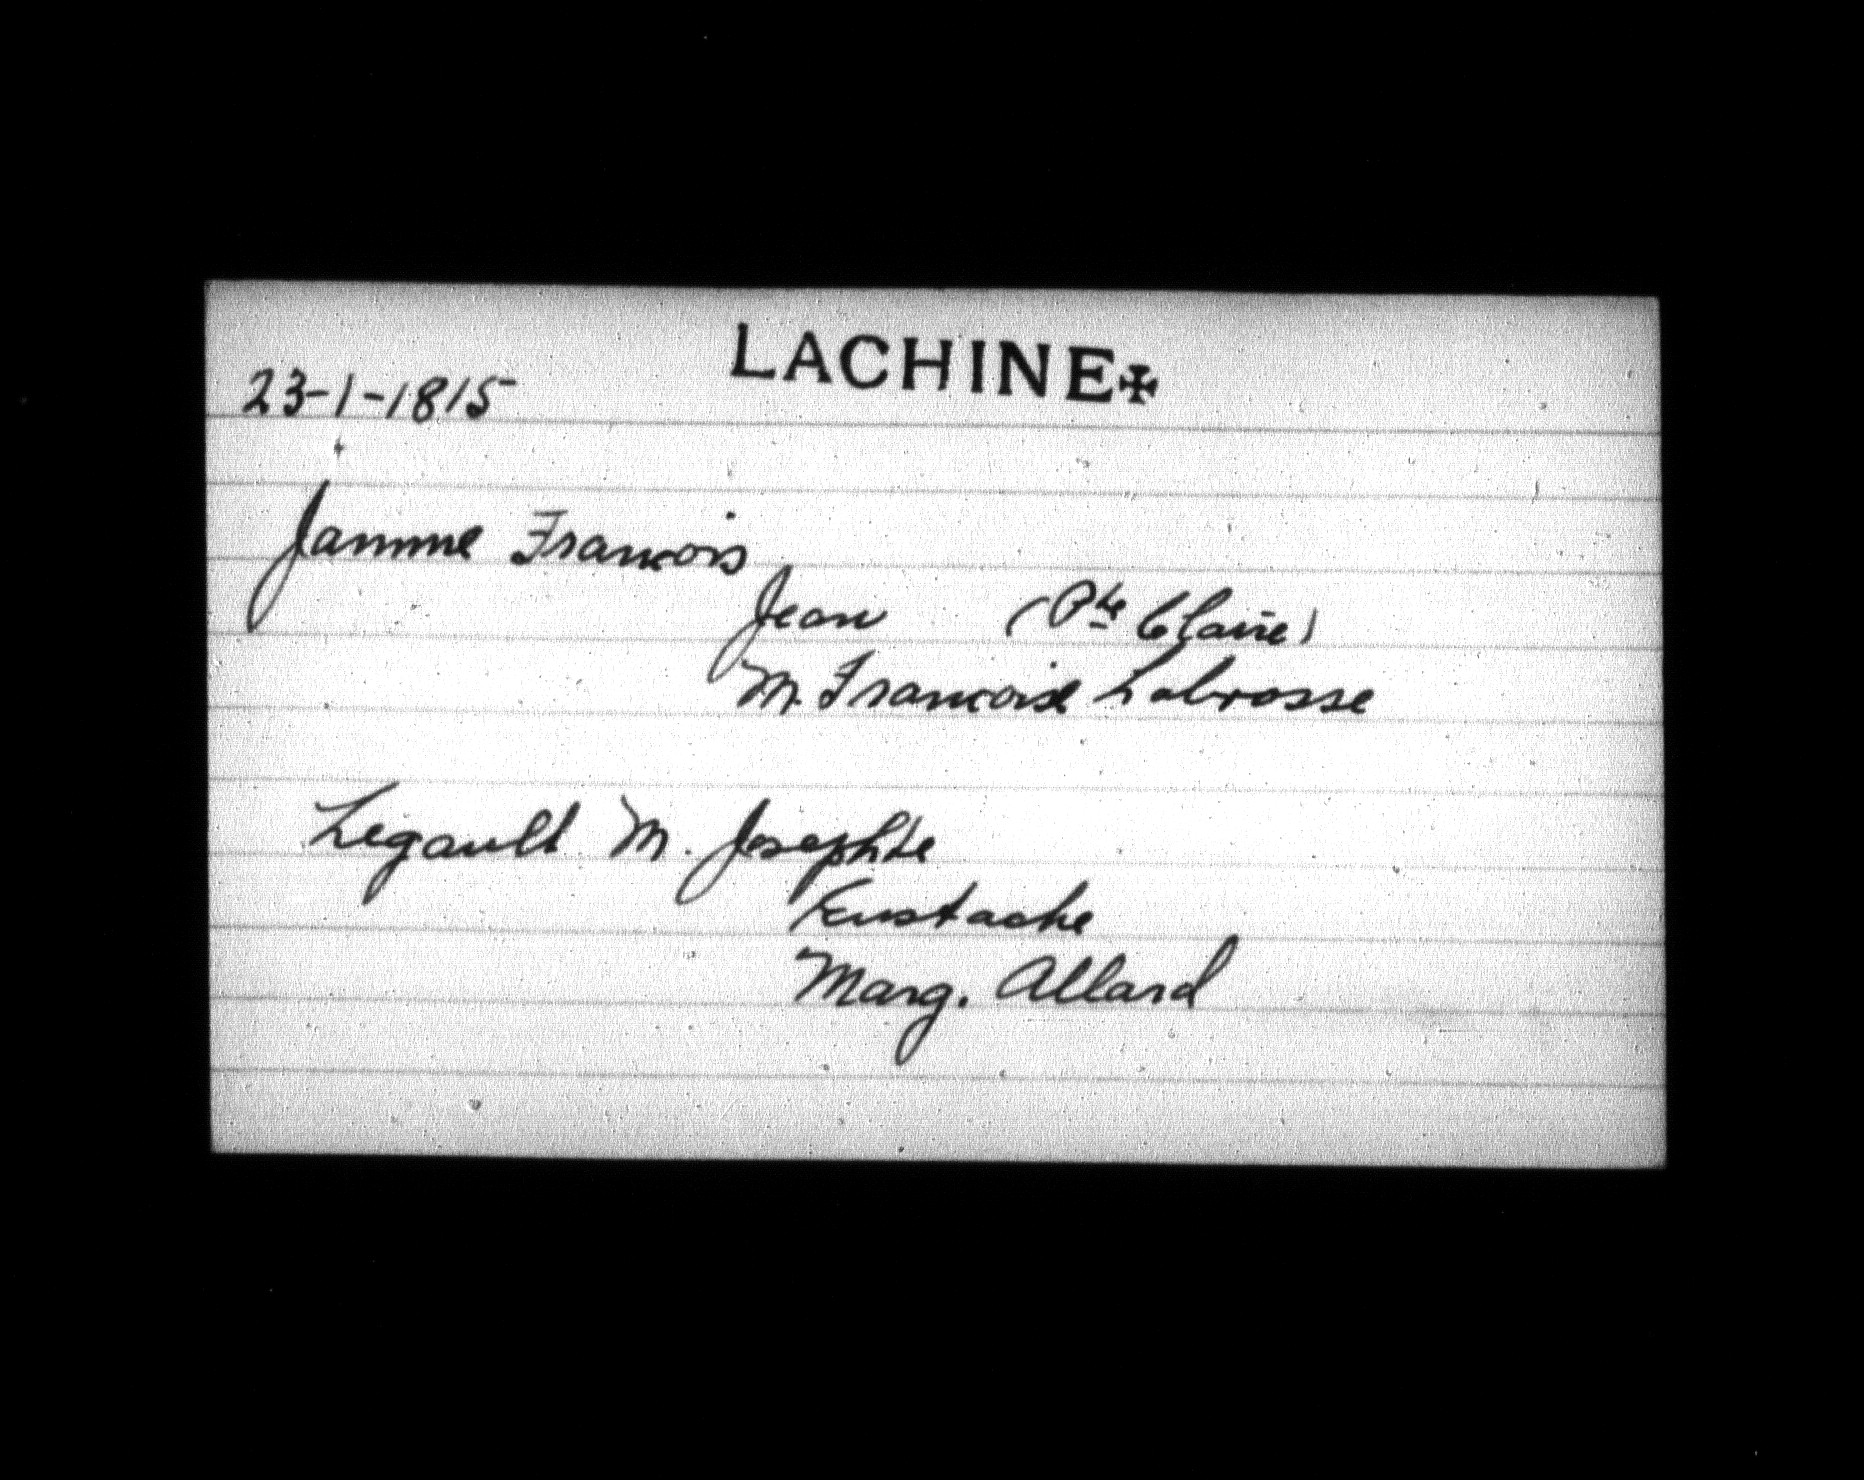 LACHINE✠
23-1-1815
Jamme Francois
Jean (Pte Claire)
M. Francoise Labrosse
Legault M. Josephte
Eustache
Marg. Allard